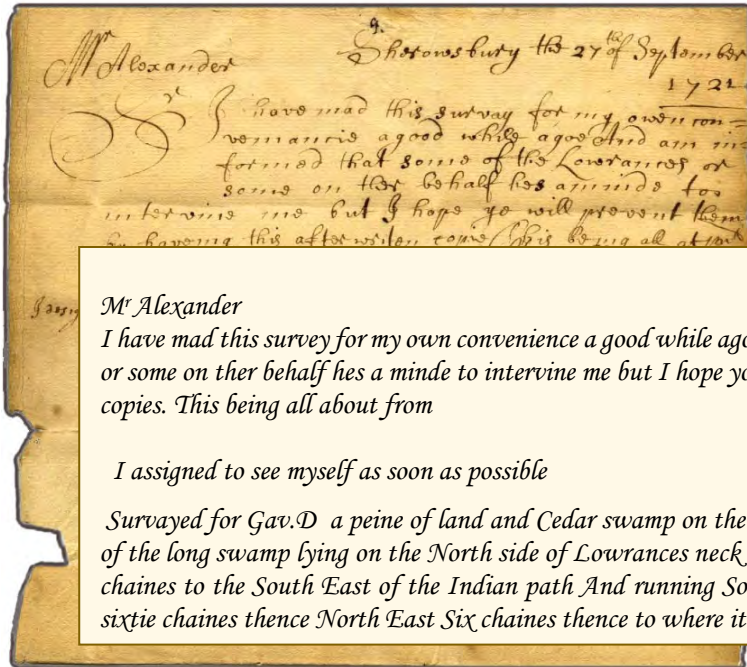 9.
Sherowsbury the 27th of September
Mr Alexander
1721
Sr I have mad this survay for my owen con=
veniancie a good while agoe And am in=
formed that some of the Lowrances or
some on ther behalf hes a minde too
intervine me but I hope ye will prevent them
by haveing this afterwriten copie This being all at
Mr Alexander
I have mad this survey for my own convenience a good while ago
or some on ther behalf hes a minde to intervine me but I hope yo
copies. This being all about from
I assigned to see myself as soon as possible
Survayed for Gav.D a peine of land and Cedar swamp on the
of the long swamp lying on the North side of Lowrances neck
chaines to the South East of the Indian path And running So
sixtie chaines thence North East Six chaines thence to where it